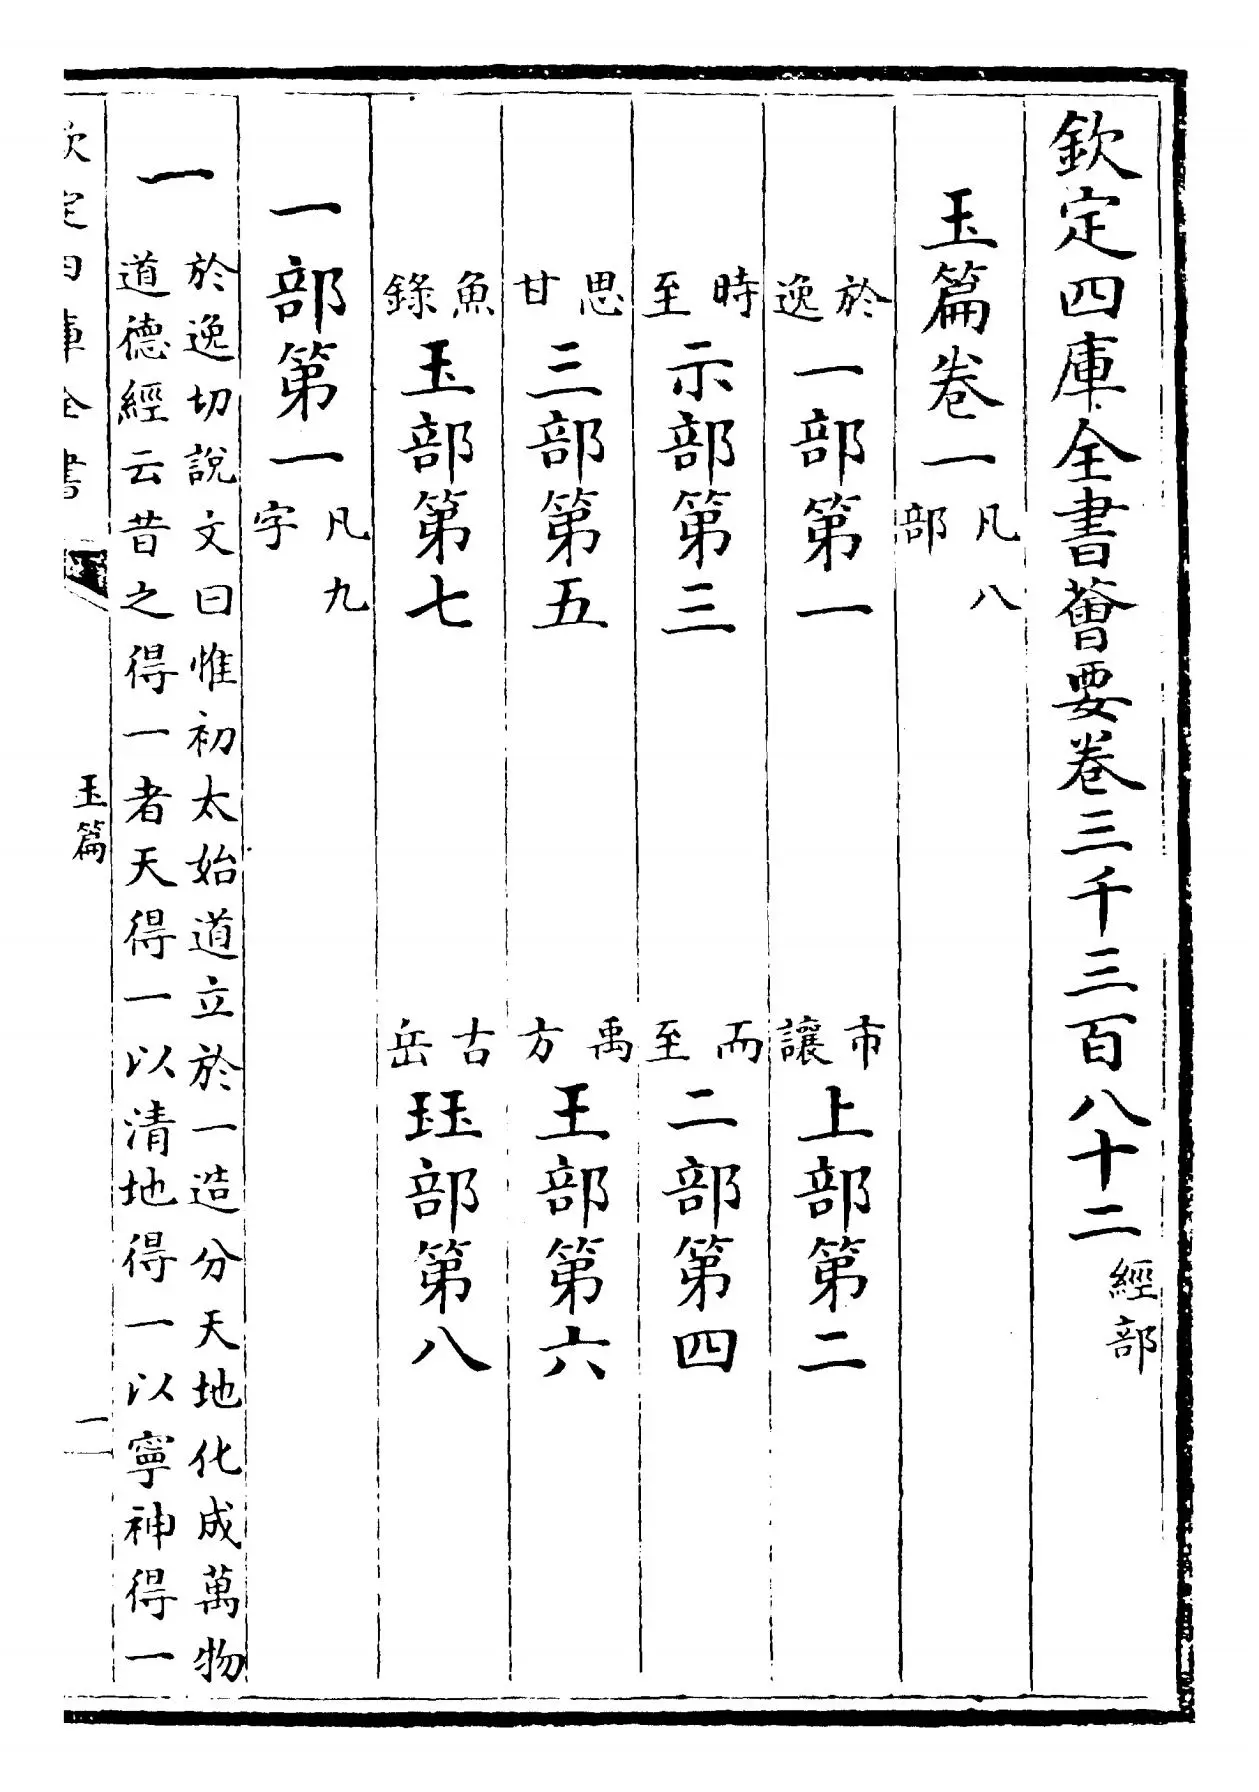 欽定四庫全書薈要卷三千三百八十二 經部
玉篇卷一 凡八部
於逸 一部第一 市讓 上部第二
時至 示部第三 而至 二部第四
思甘 三部第五 禹方 王部第六
魚錄 玉部第七 古岳 珏部第八
一部第一 凡九字
一 於逸切說文曰惟初太始道立於一造分天地化成萬物
道德經云昔之得一者天得一以清地得一以寧神得一
欽定四庫全書 玉篇 一